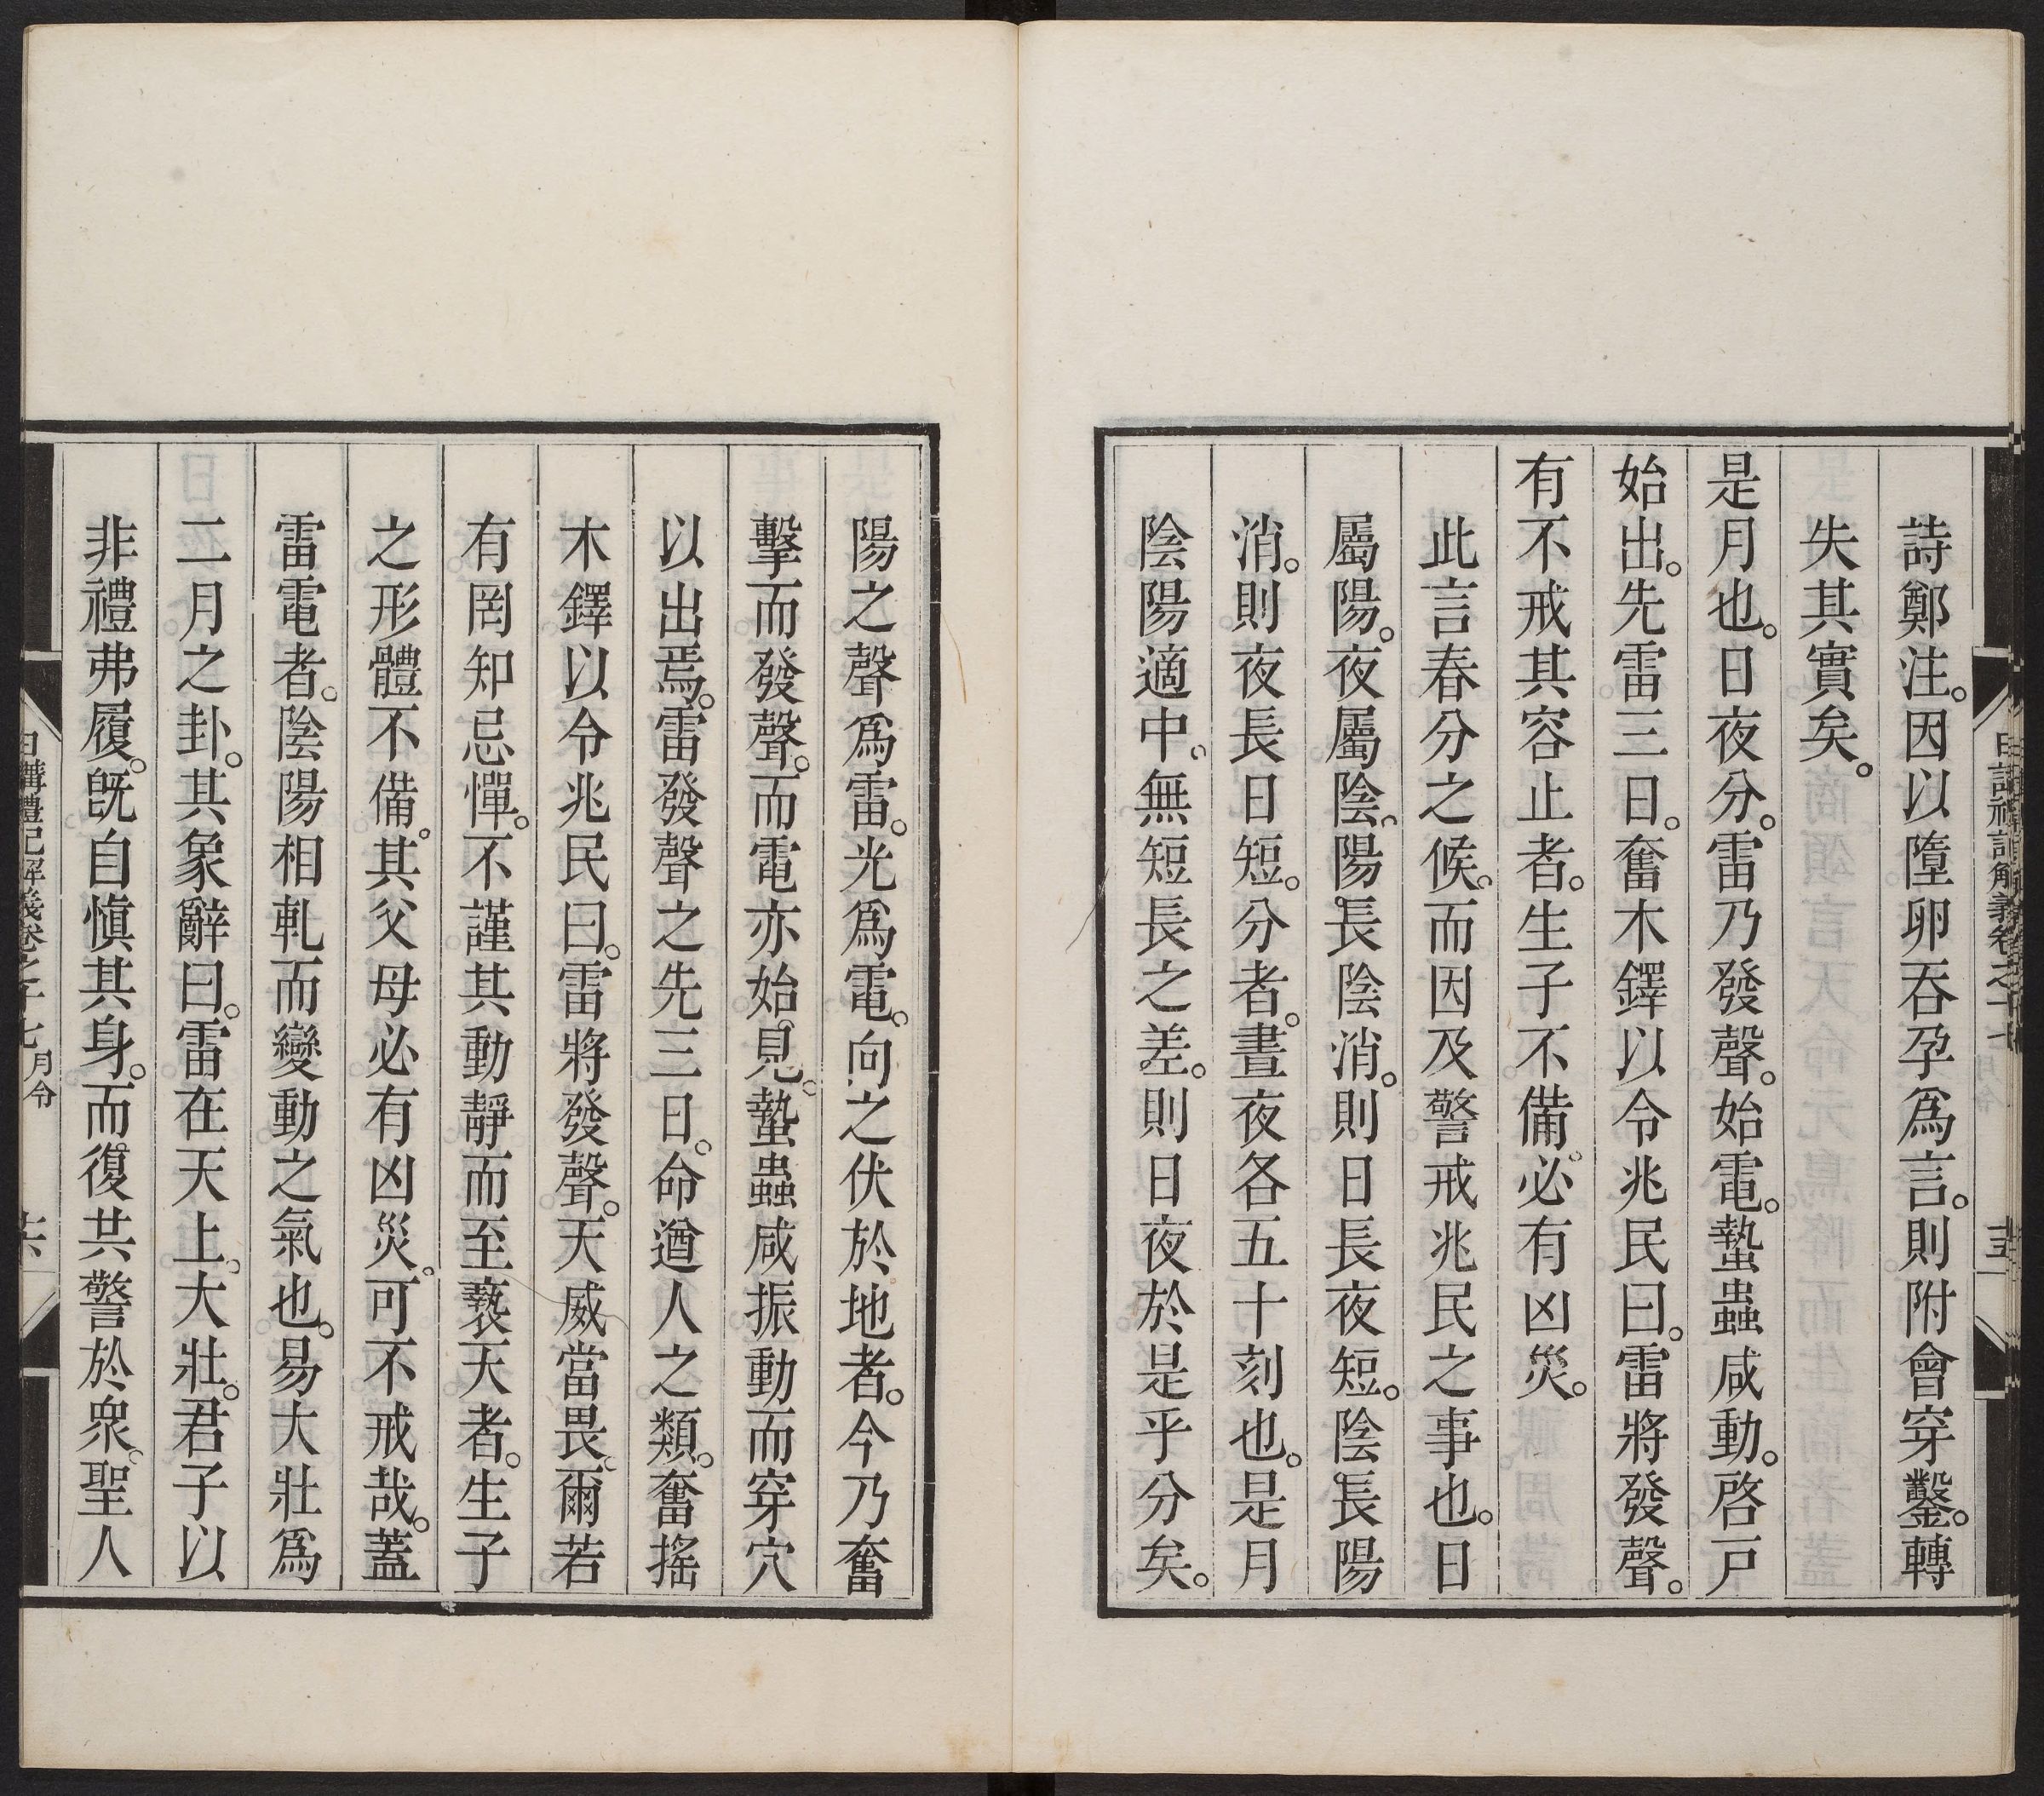 詩鄭注。因以墮卵吞孕爲言。則附會穿鑿。轉
失其實矣。
是月也。日夜分。雷乃發聲。始電。蟄蟲咸動。啓戶
始出。先雷三日。奮木鐸以令兆民曰。雷將發聲。
有不戒其容止者。生子不備。必有凶災。
此言春分之候。而因及警戒兆民之事也。日
屬陽。夜屬陰。陽長陰消。則日長夜短。陰長陽
消。則夜長日短。分者。晝夜各五十刻也。是月
陰陽適中。無短長之差。則日夜於是乎分矣。
陽之聲爲雷。光爲電。向之伏於地者。今乃奮
擊而發聲。而電亦始見。蟄蟲咸振動而穿穴
以出焉。雷發聲之先三日。命遒人之類。奮搖
木鐸以令兆民曰。雷將發聲。天威當畏。爾若
有罔知忌憚。不謹其動靜而至褻天者。生子
之形體不備。其父母必有凶災。可不戒哉。蓋
雷電者。陰陽相軋而變動之氣也。易大壯爲
二月之卦。其象辭曰。雷在天上。大壯。君子以
非禮弗履。旣自愼其身。而復共警於衆。聖人
日講禮記解義卷之十七 月令